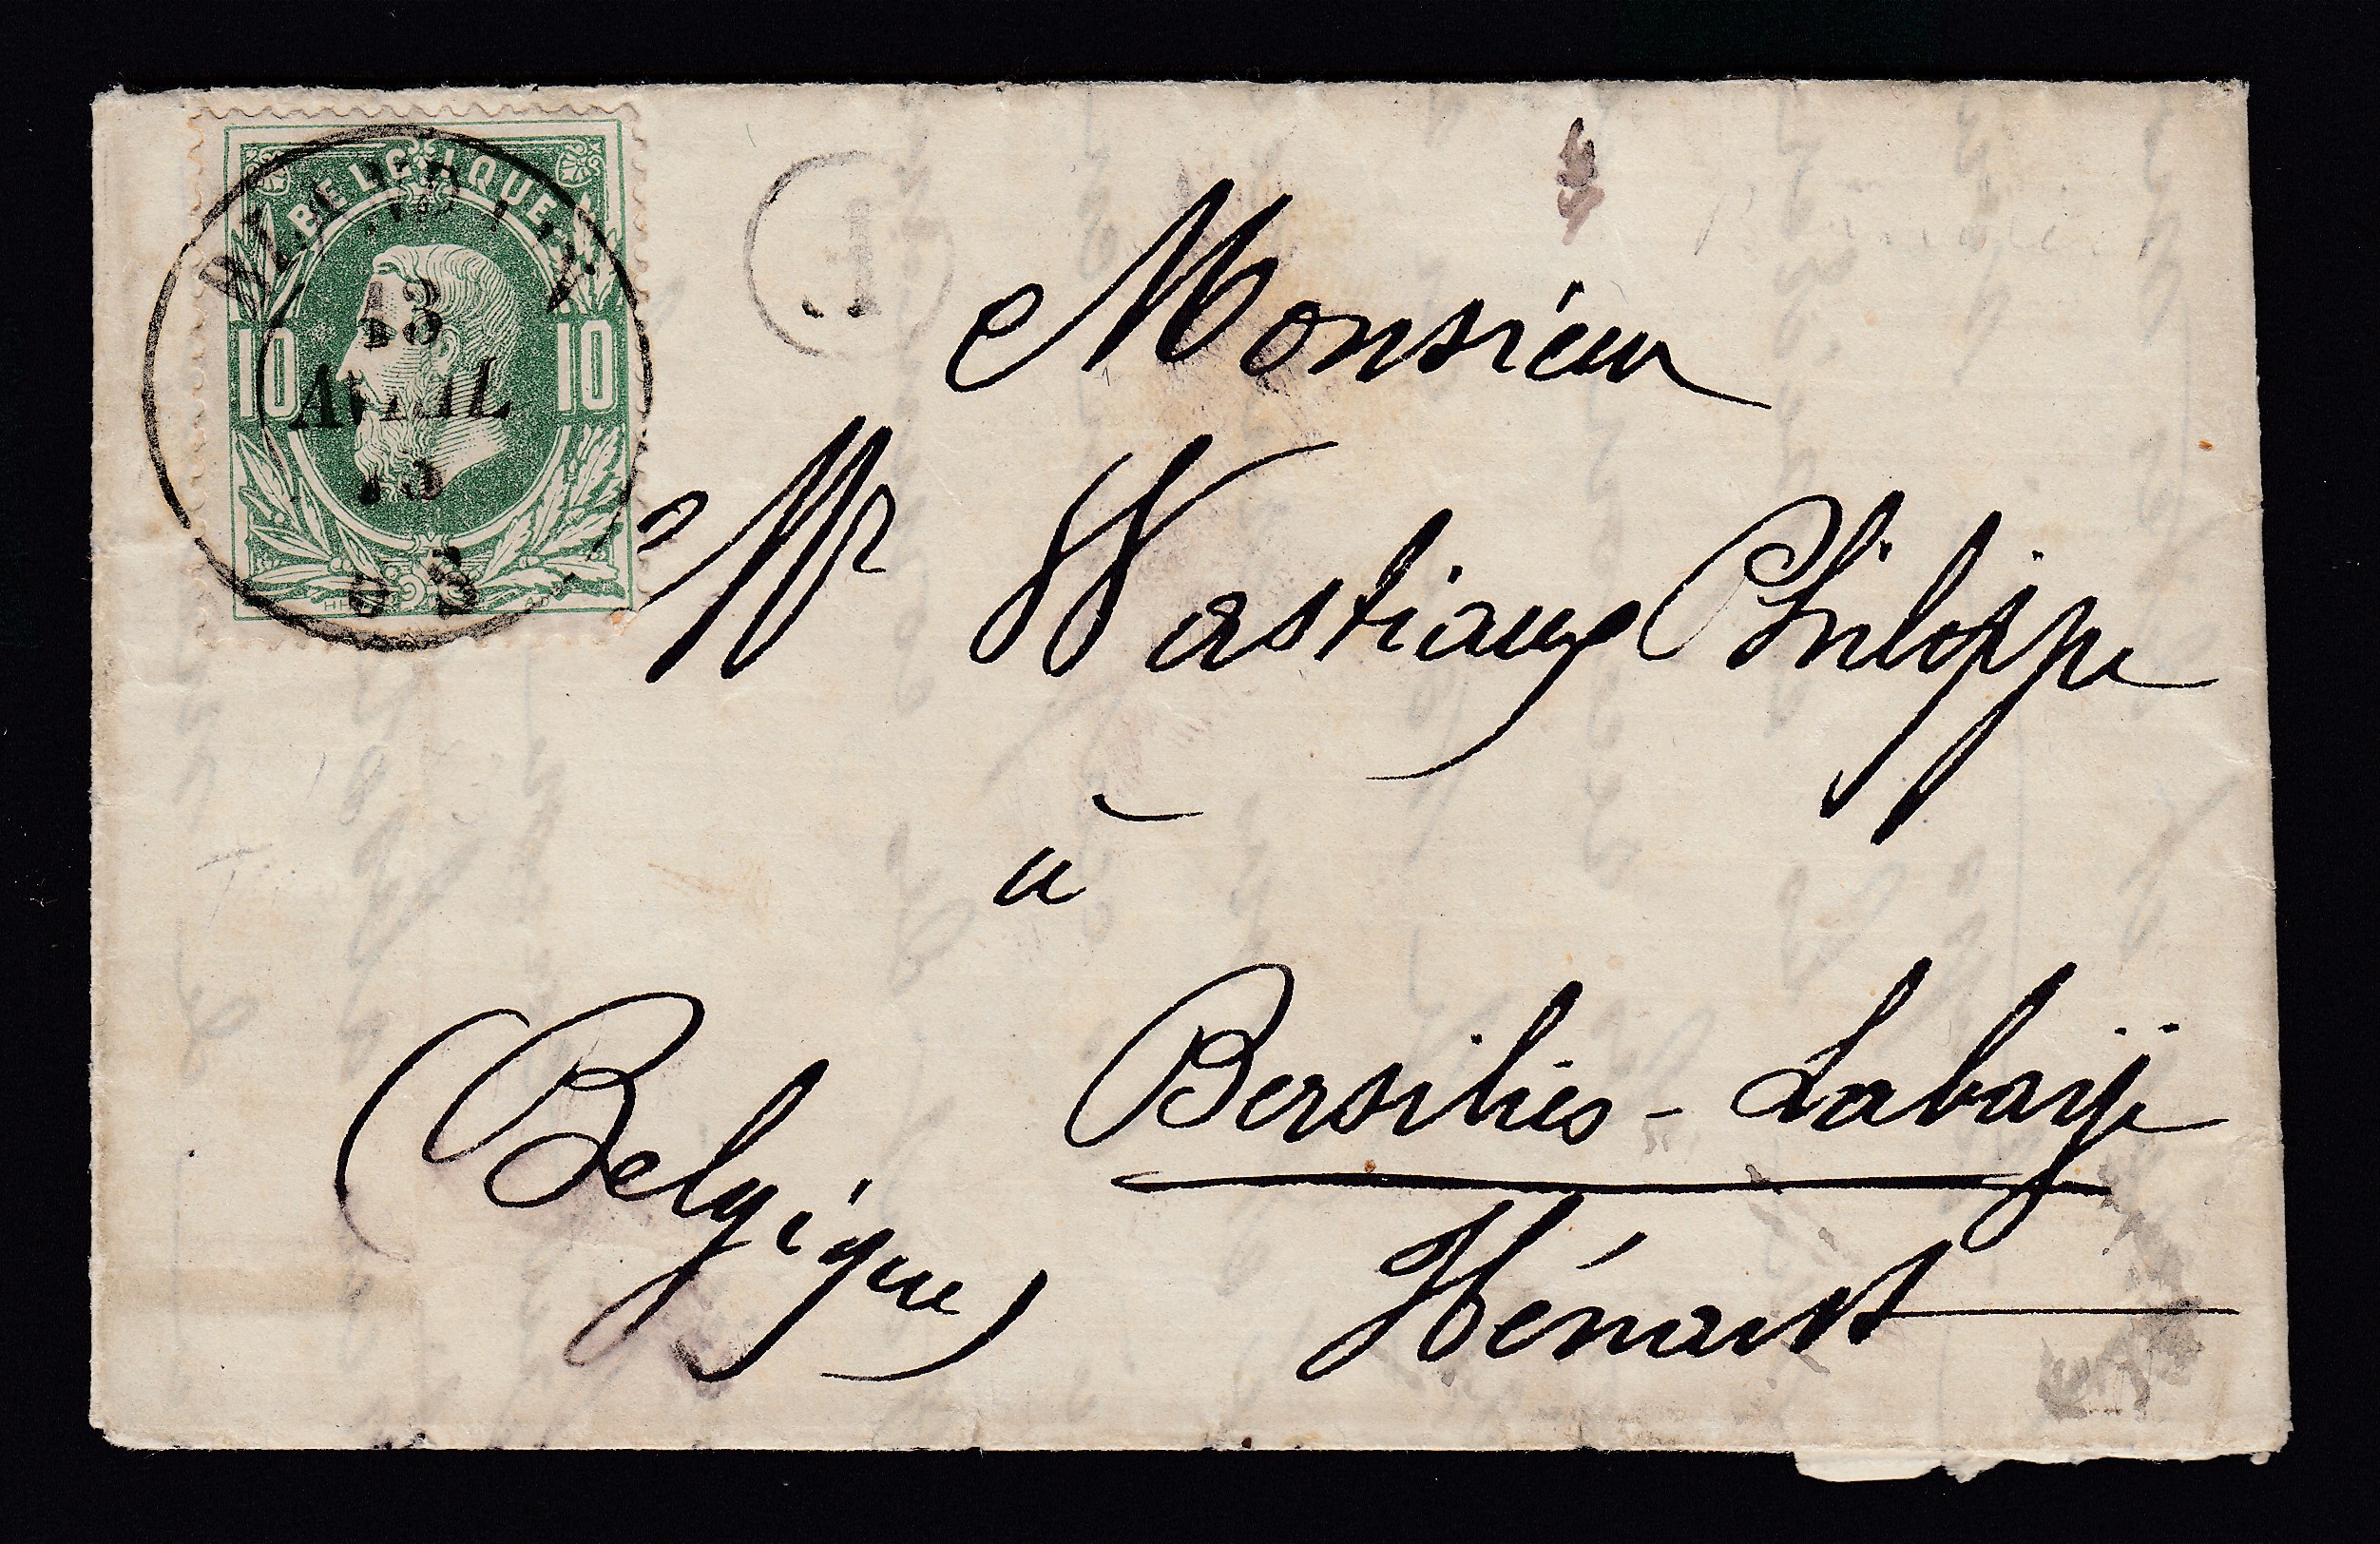 BELGIQUE
10 10
13
AVRIL
73
Monsieur
Mr Wastiaux Philippe
à
Bersilies - Labaÿe
(Belgique)
Hénaut